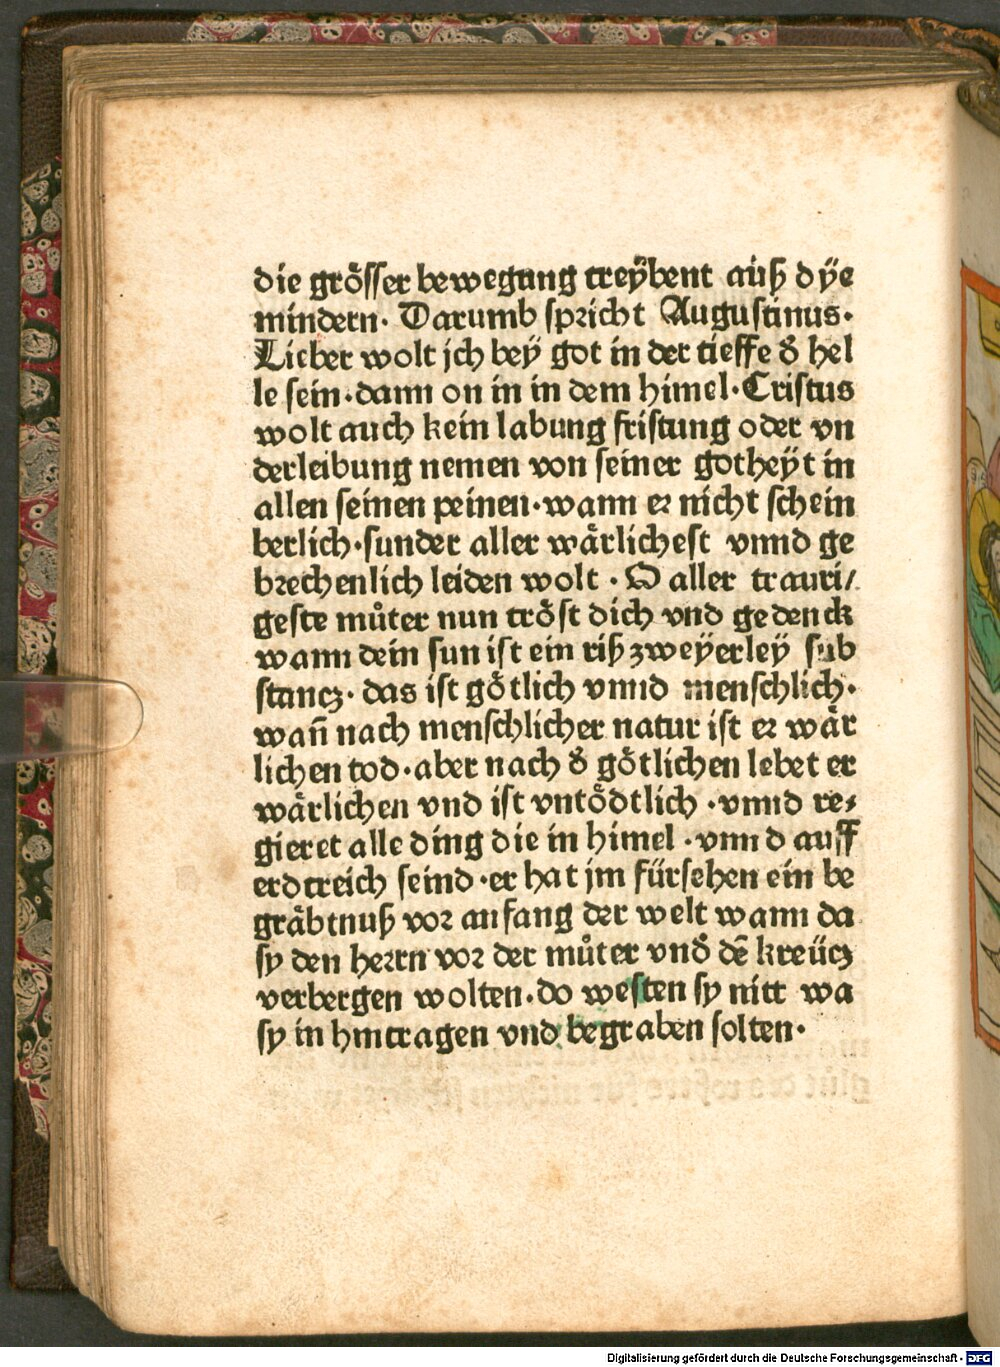 die grösser bewegung treÿbent auß dÿe
mindern. Darumb spricht Augustinus.
Lieber wolt jch beÿ got in der tieffe d̕ hel
le sein.dann on in in dem himel.Cristus
wolt auch kein labung fristung oder vn
derleibung nemen von seiner gotheÿt in
allen seinen peinen.wann er nicht schein
berlich.sunder aller wårlichest vnnd ge
brechenlich leiden wolt . O aller trauri/
geste můter nun trőst dich vnd gedenck
wann dein sun ist ein riß zweÿerleÿ sub
stancz. das ist gőtlich vnnd menschlich.
wañ nach menschlicher natur ist er wår
lichen tod.aber nach d̕ gőtlichen lebet er
wårlichen vnd ist vntődtlich .vnnd re⸗
gieret alle ding die in himel .vnnd auff
erdtreich seind.er hat jm fürsehen ein be
gråbtnuß vor anfang der welt wann da
sy den herrn vor der můter vnd̕ dē kreücz
verbergen wolten.do westen sy nitt wa
sy in hintragen vnd begraben solten.
Digitalisierung gefördert durch die Deutsche Forschungsgemeinschaft - DFG